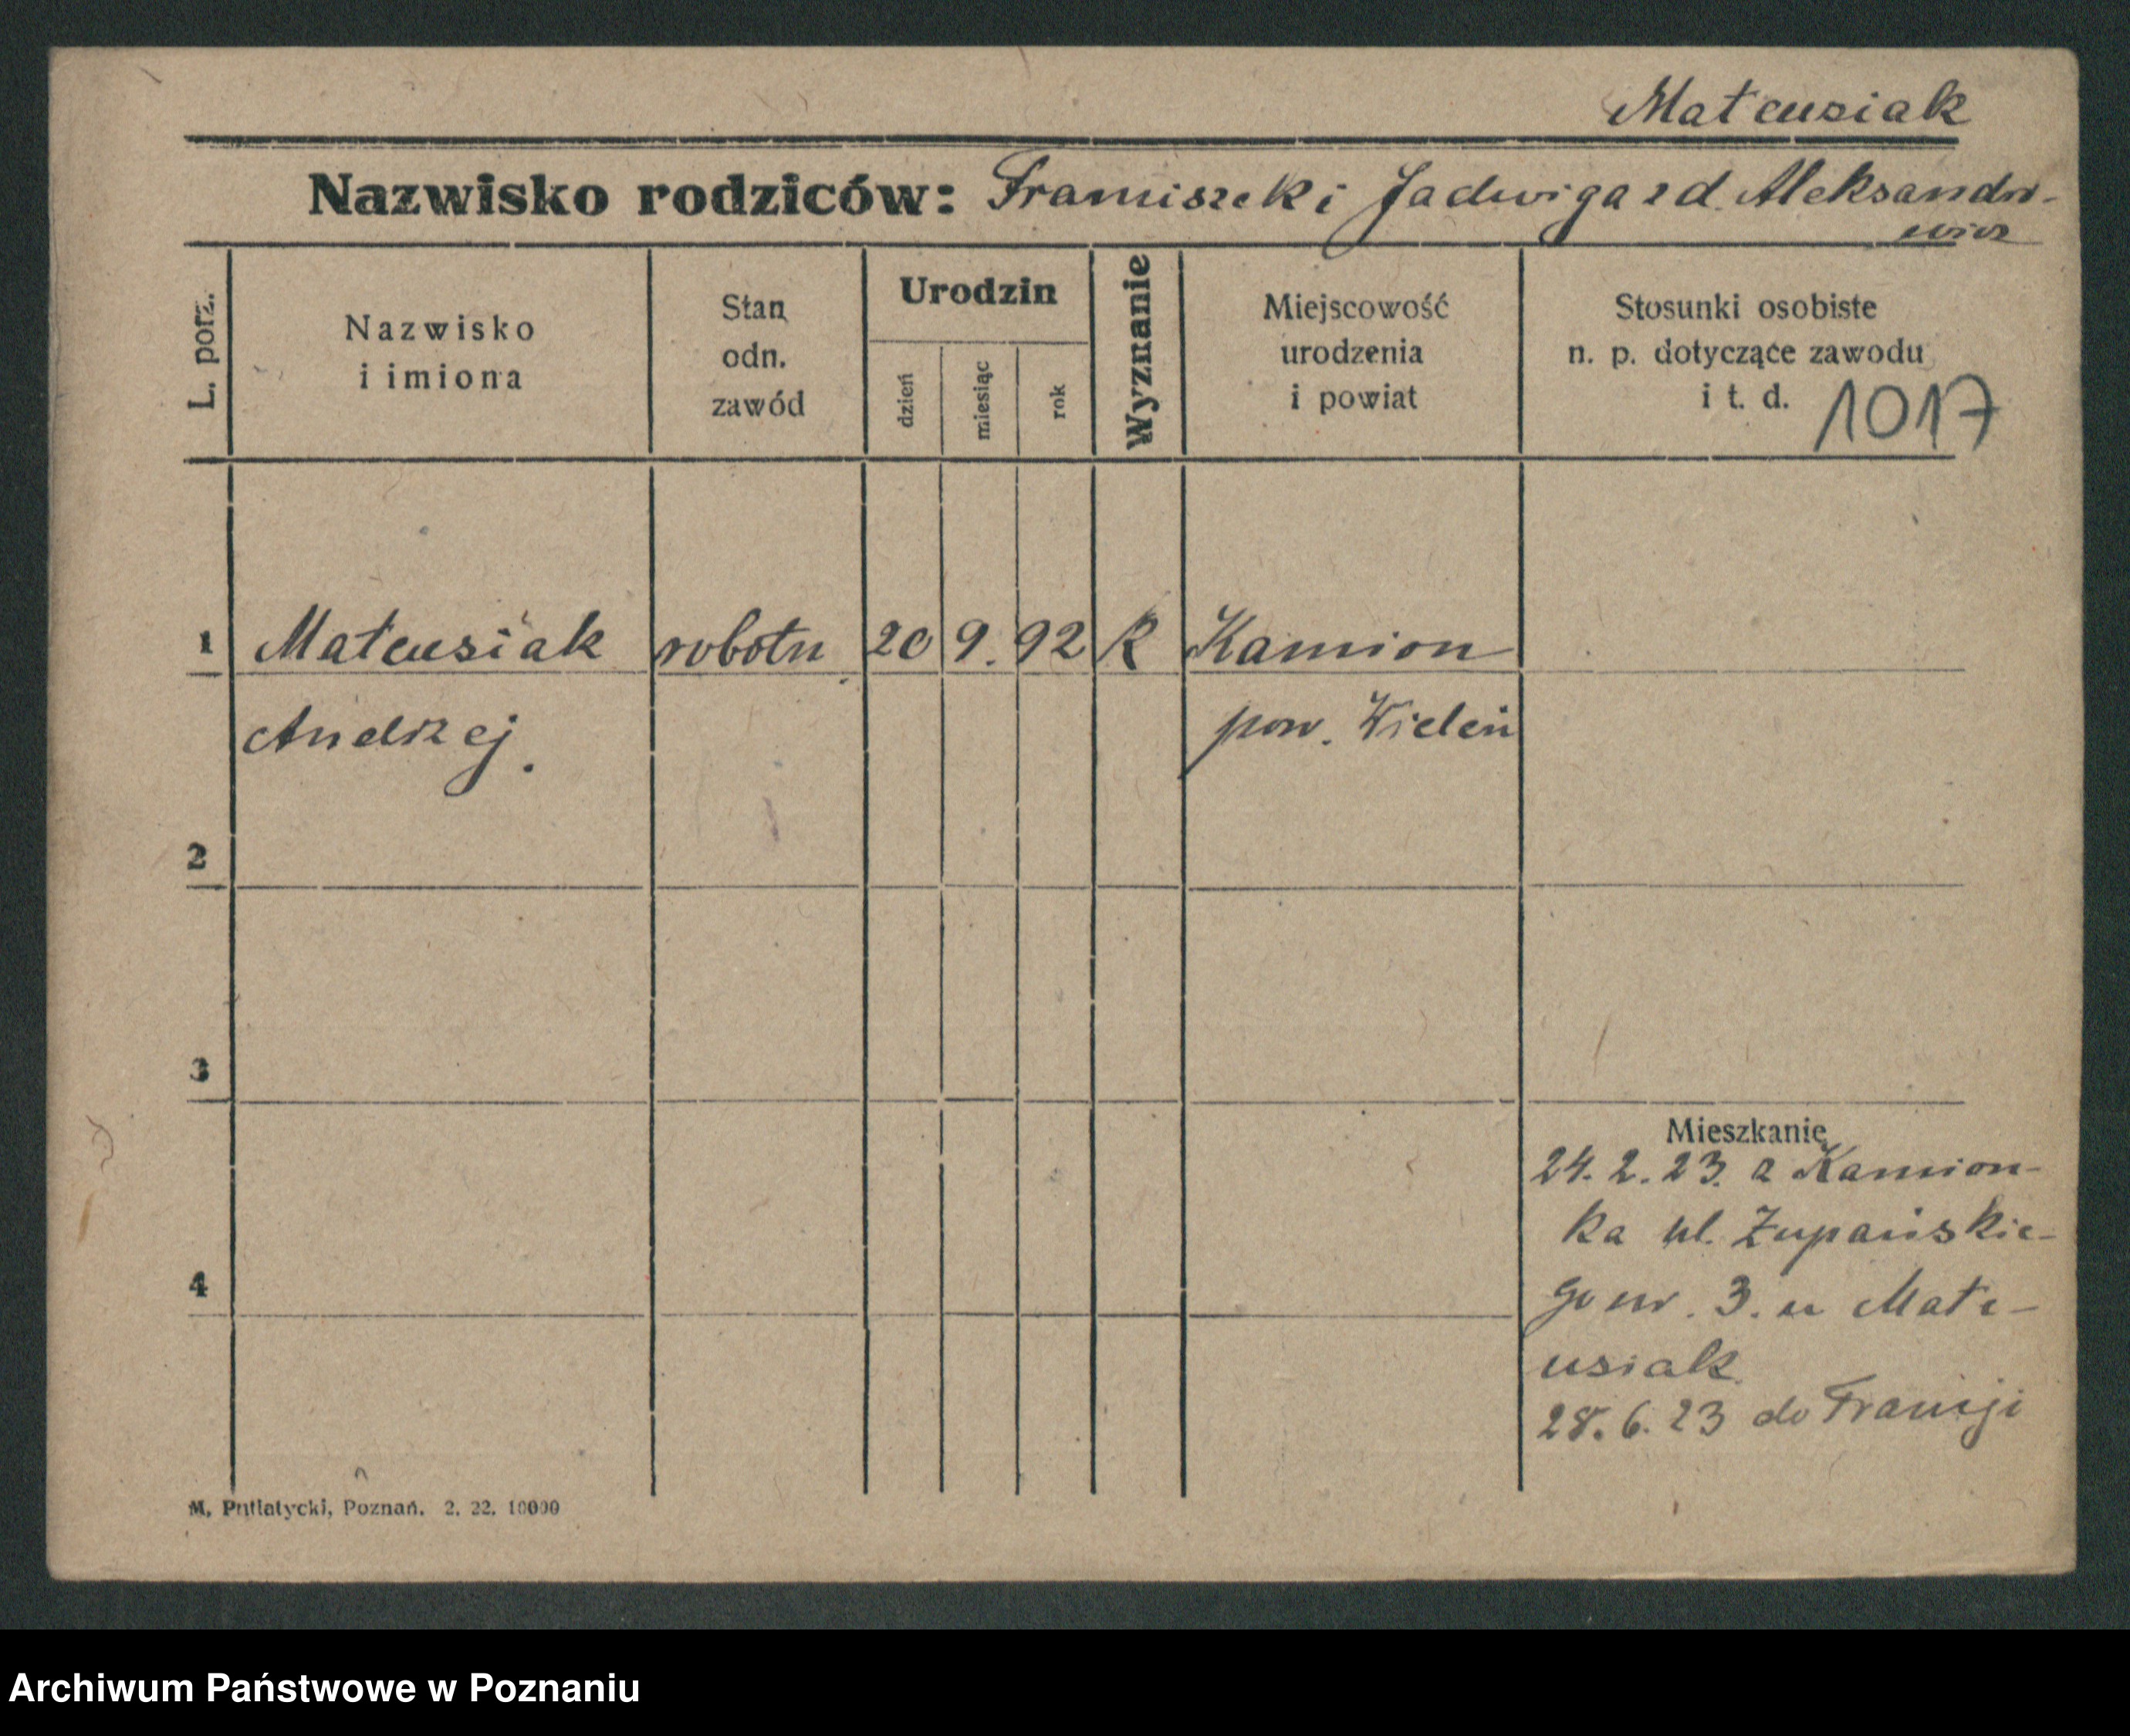 Mateusiak
Nazwisko rodziców: Franciszek i Jadwiga z d. Aleksandro-
wicz
L. porz.
Nazwisko
i imiona
Stan
odn.
zawód
Urodzin
dzień
miesiąc
rok
Wyznanie
Miejscowość
urodzenia
i powiat
Stosunki osobiste
n. p. dotyczące zawodu
i t. d. 1017
1 Mateusiak robotn 20 9. 92 R Kamion
Andrzej. pow. Wieleń
2
3
Mieszkanie
24. 2. 23. z Kamion-
ka ul. Żupańskie-
4
go nr. 3. u Mate-
usiak
28. 6. 23 do Francji
M. Putiatycki, Poznań. 2. 22. 10000
Archiwum Państwowe w Poznaniu